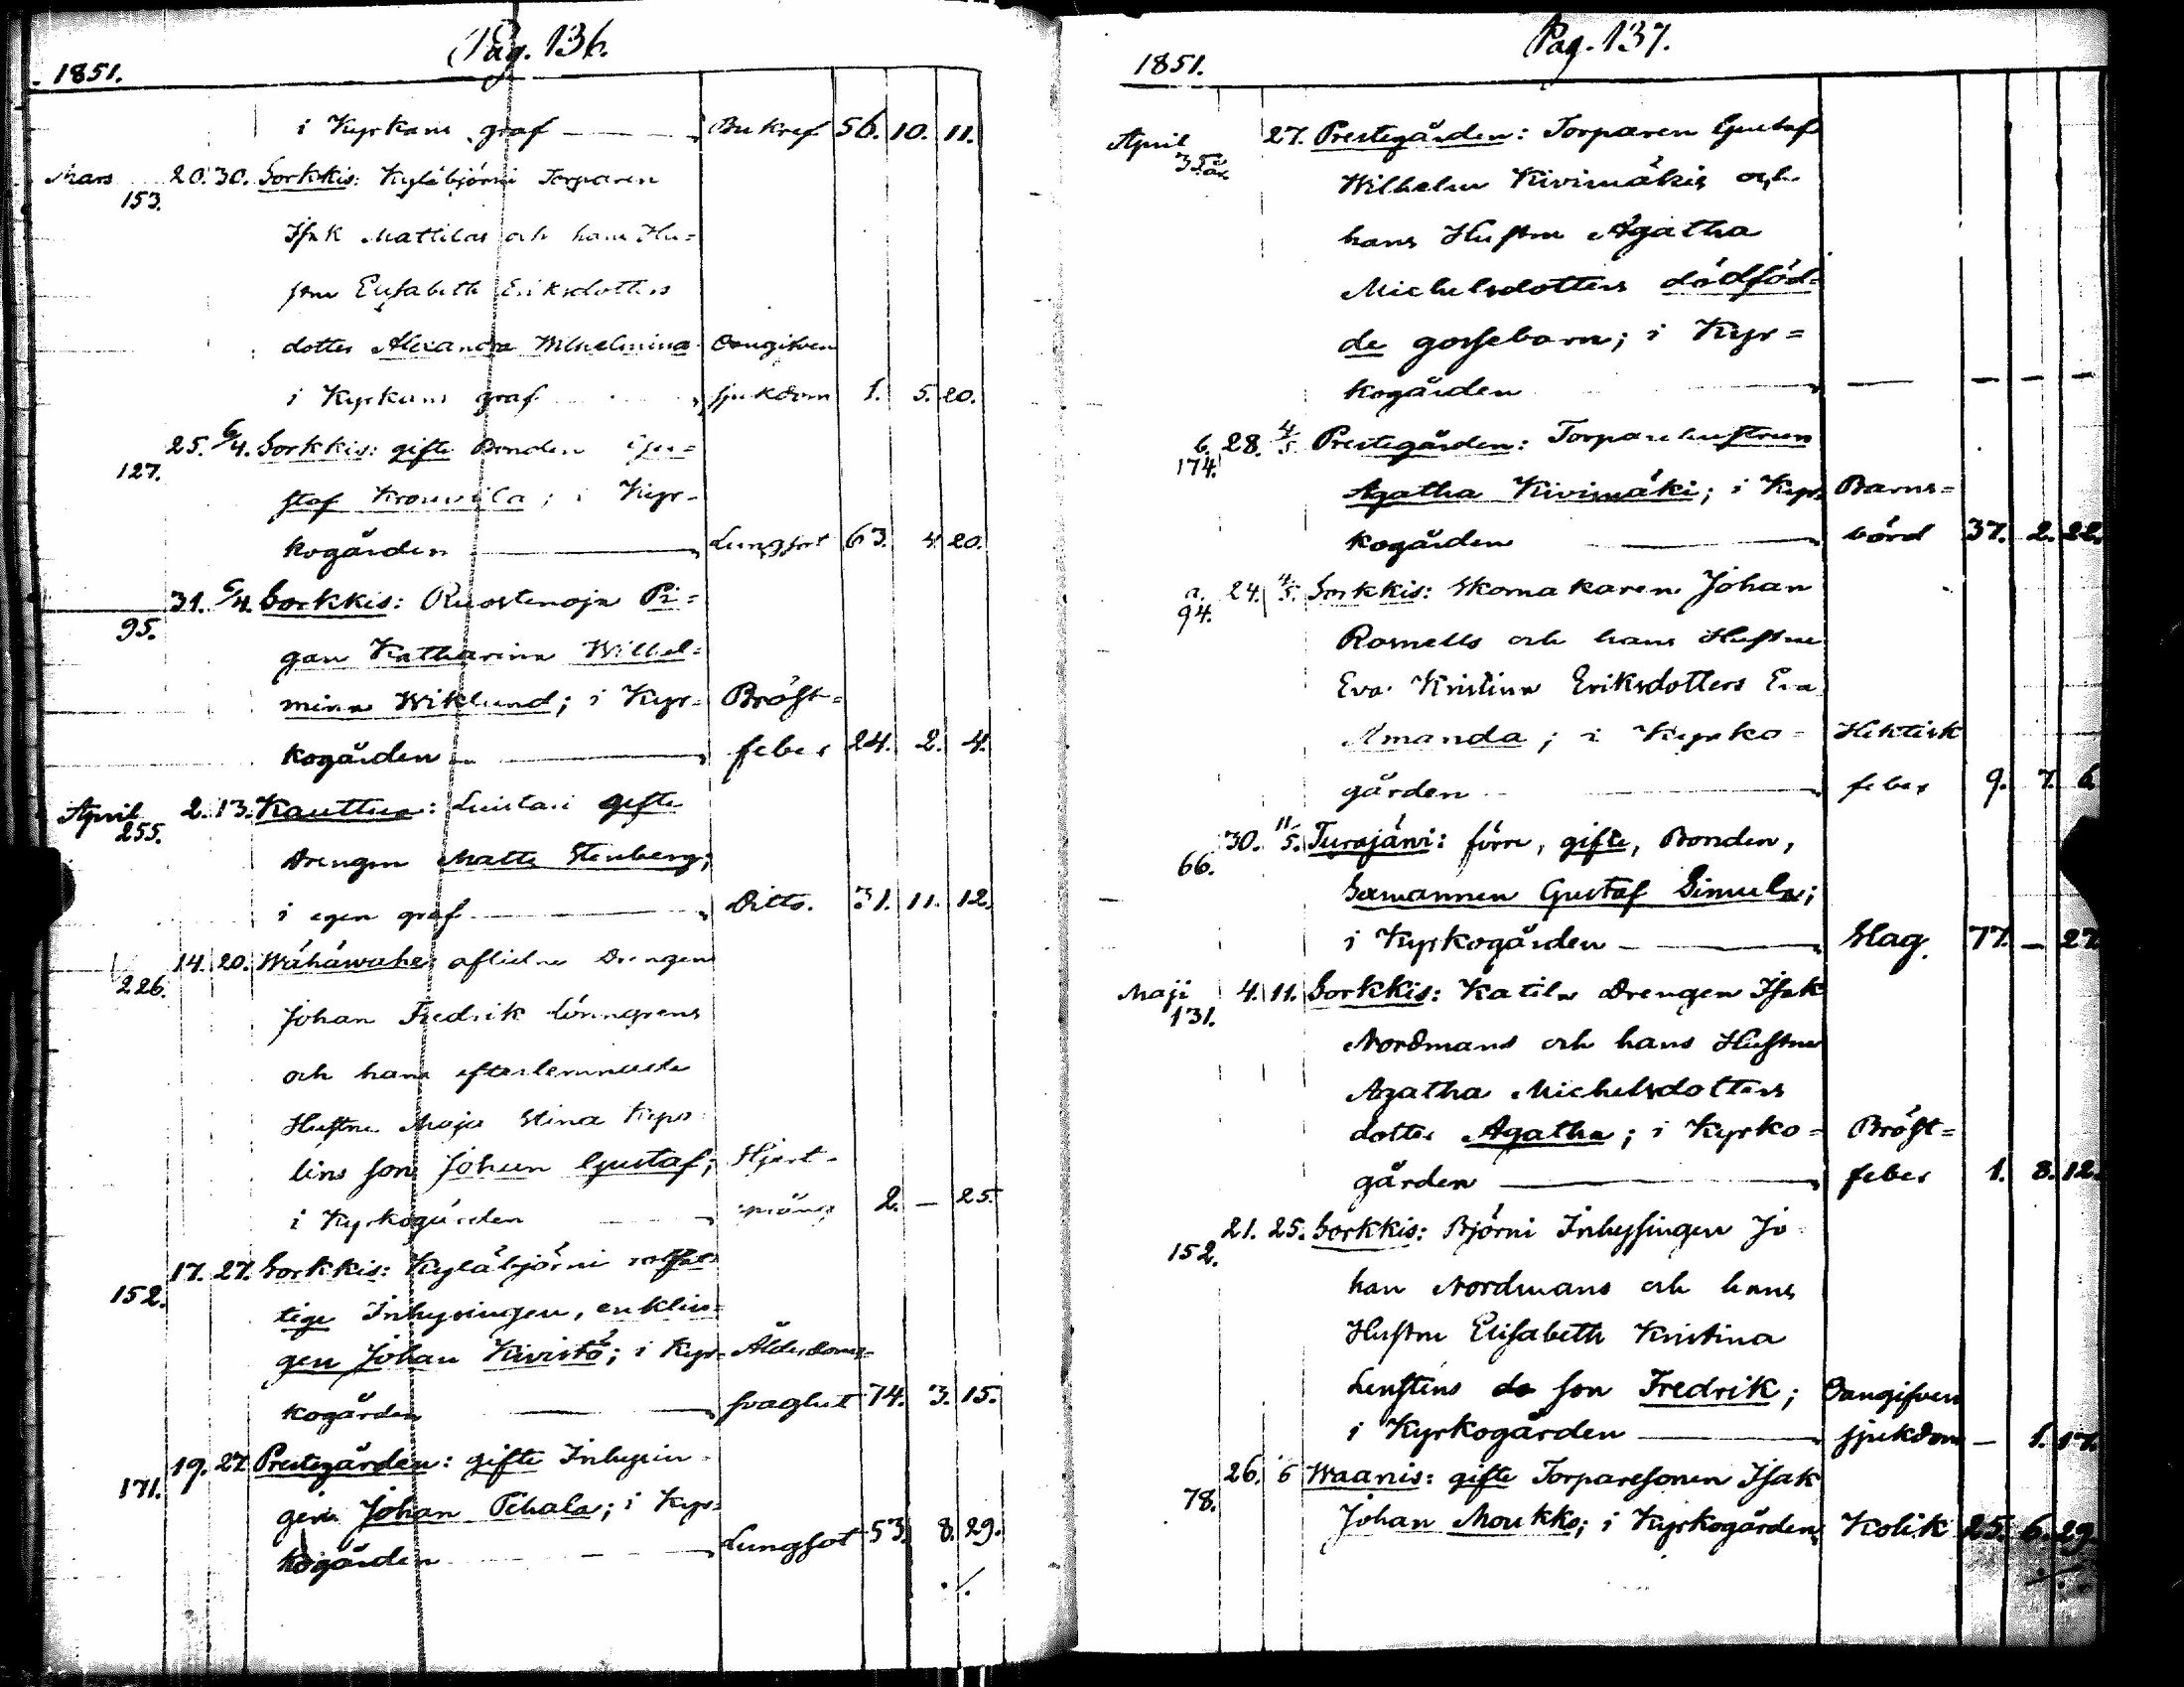 Pag. 136.
1851.
i Kyrkans graf Bukref 56. 10. 11.
Mars 20. 30. Sorkkis: Kyläbjörni Torparen
153.
Isak Mattilas och hans Hu=
stru Elisabeth Eriksdotters
dotter Alexandra Wilhelmina Oangifven
i Kyrkans graf sjukdom 1. 5. 20.
25. 6/4. Sorkkis: gifte Bonden Gu=
127.
staf Krouvila; i Kyr-
kogården Lungsot 63. 4. 20.
31. 6/4. Sorkkis: Ruostenoja Pi=
95.
gan Katharina Wilhel=
mina Wiklund; i Kyr= Bröst=
kogården feber 24. 2. 4.
April 2. 13. Kauttua: Luistari gifte
255.
Drengen Matts Stenberg;
i egen graf Ditto. 31. 11. 12.
14. 20. Wähäwahe: aflidne Drengen
226.
Johan Fredrik Lönngrens
och hans efterlemnade
Hustru Maja Stina
lins son Johan Gustaf; Hjert-
i Kyrkogården 2. — 25.
17. 27. Sorkkis: Kyläbjörni rotfat=
152.
tige Inhysingen, enklin=
gen Johan Kivistö; i Kyr= Ålderdoms=
kogården svaghet 74. 3. 15.
19. 27. Prestegården: gifte Inhysin-
171.
gen Johan Tehala; i Kyr=
kogården Lungsot 53. 8. 29.
./.
Pag. 137.
1851.
April 27. Prestegården: Torparen Gustaf
35 år.
Wilhelm Kivimäkis och
hans Hustru Agatha
Michelsdotters dödföd=
de gossebarn; i Kyr=
kogården — — — —
b. 28. 4/5. Prestegården: Torparehustrun
174.
Agatha Kivimäki; i Kyr= Barns=
kogården börd 37. 2. 22.
a. 24. 4/5. Sorkkis: Skomakaren Johan
94.
Rosnells och hans Hustru
Eva Kristina Eriksdotters Eva
Amanda; i Kyrko= Hektisk
gården feber 9. 7. 6.
30. 11/5. Turajärvi: förre, gifte, Bonden,
66.
Sexmannen Gustaf Simula;
i Kyrkogården Slag. 77. — 27.
Maji 4. 11. Sorkkis: Katila Drengen Isak
131.
Nordmans och hans Hustru
Agatha Michelsdotters
dotter Agatha; i Kyrko= Bröst=
gården feber 1. 8. 12.
21. 25. Sorkkis: Björni Inhysingen Jo
152.
han Nordmans och hans
Hustru Elisabeth Kristina
Lensténs do son Fredrik; Oangifven
i Kyrkogården sjukdom — 1. 17.
26. 6 Waanis: gifte Torparesonen Isak
78.
Johan Moukko; i Kyrkogården Kolik 25. 6. 29.